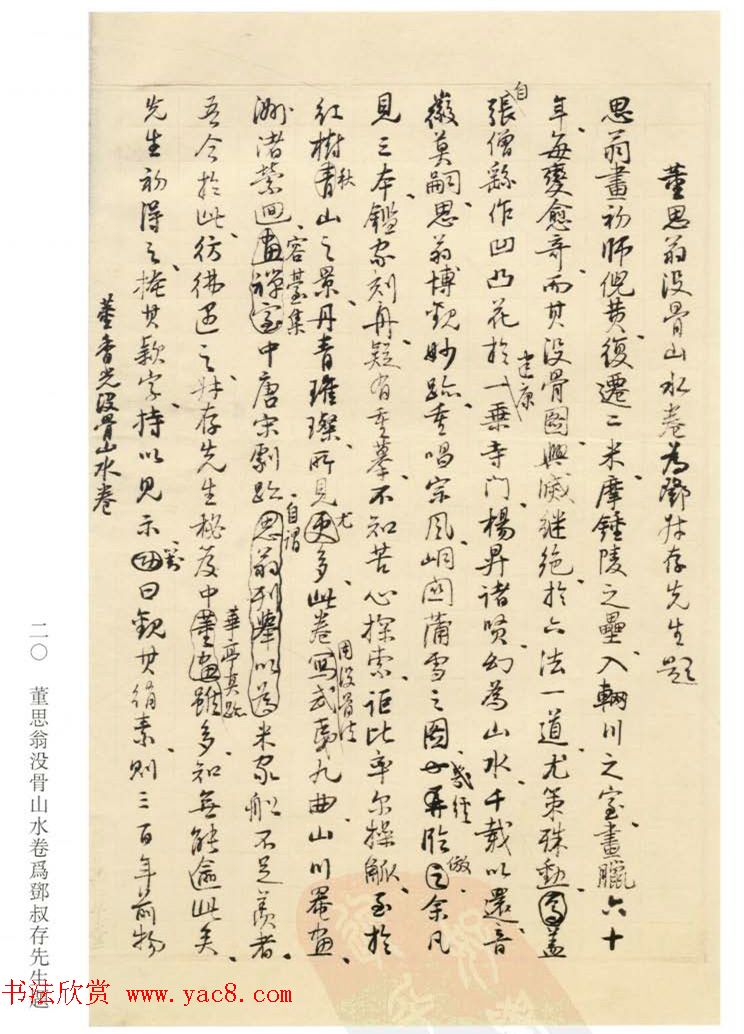 董思翁没骨山水卷為鄧叔存先生題
思翁畫初師倪黄復遷二米摩鍾陵之壘入輞川之室畫臘六十
年每變愈奇而其没骨圖興滅繼絶於六法一道尤策殊勳焉蓋
自張僧繇作凹凸花於建康一乘寺門楊昇諸賢幻為山水千載以還音
徽莫嗣思翁博觀妙跡重唱宗風峒關蒲雪之圖幾經再臨倣之余凡
見三本鑑家刻舟疑有重摹不知苦心探索詎比率尔操觚至於
紅樹秋青山之景丹青璀璨所見尤更多此卷用没骨法寫武夷九曲山川罨畫
洲渚縈迴容臺集畫禪室中唐宋劇跡自謂思翁列舉以為米家船不足羨者
吾今於此彷彿遇之叔存先生秘笈中華亭真跡董畫雖多知無能逾此矣
先生初得之掩其款字持以見示對曰觀其絹素則三百年前物
董香光没骨山水卷
二〇 董思翁没骨山水卷爲鄧叔存先生題
书法欣赏 www.yac8.com